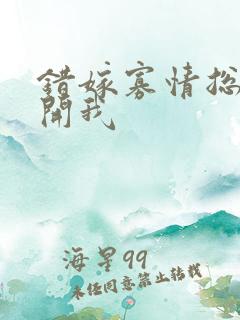 錯嫁寡情
開我
海星99
未经同意禁止转载